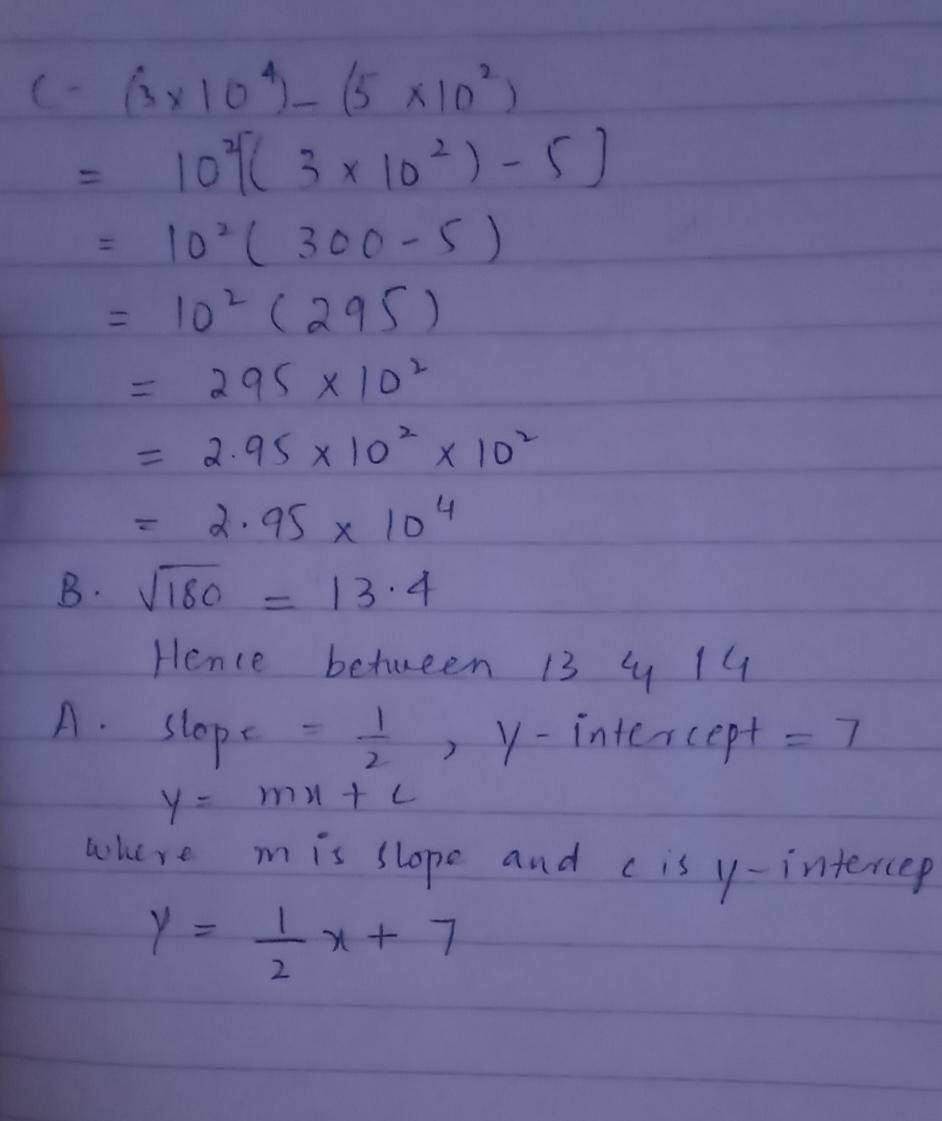 C- (3 x 10⁴) - (5 x 10²)
= 10²[(3 x 10²) - 5]
= 10² (300 - 5)
= 10² (295)
= 295 x 10²
= 2.95 x 10² x 10²
= 2.95 x 10⁴
B. √180 = 13.4
Hence between 13 & 14
A. slope = 1/2 , y-intercept = 7
y = mx + c
where m is slope and c is y-intercep
y = 1/2 x + 7